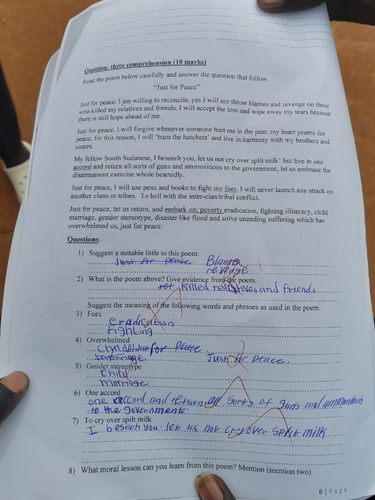 Question: three comprehension (10 marks)
Read the poem below carefully and answer the question that follow.
"Just for Peace"
Just for peace. I am willing to reconcile, yes I will not throw blames and revenge on those
who killed my relatives and friends. I will accept the loss and wipe away my tears because
there is still hope ahead of me.
Just for peace, I will forgive whenever someone hurt me in the past, my heart yearns for
peace, for this reason, I will 'burn the hatchets' and live in harmony with my brothers and
sisters.
My fellow South Sudanese, I beseech you, let us not cry over spilt milk' but live in one
accord and return all sorts of guns and ammunitions to the government, let us embrace the
disarmament exercise whole heartedly.
Just for peace, I will use pens and books to fight my foes. I will never launch any attack on
another clans or tribes. To hell with the inter-clan/tribal conflict.
Just for peace, let us return, and embark on; poverty eradication, fighting illiteracy, child
marriage, gender stereotype, disaster like flood and solve unending suffering which has
overwhelmed us, just for peace.
Questions:
1) Suggest a suitable little to this poem.
Just for peace Blame
revenge
2) What is the poem above? Give evidence from the poem.
killed relatives and friends
Suggest the meaning of the following words and phrases as used in the poem.
3) Foes
eradication
fighting
4) Overwhelmed
for peace Just for peace.
marriage
5) Gender stereotype
child
marriage
6) One accord
one accord and return all sorts of guns and ammunitions
to the government
7) To cry over spilt milk
I beseech you let us not cry over spilt milk
8) What moral lesson can you learn from this poem? Mention (mention two)
6 | Page